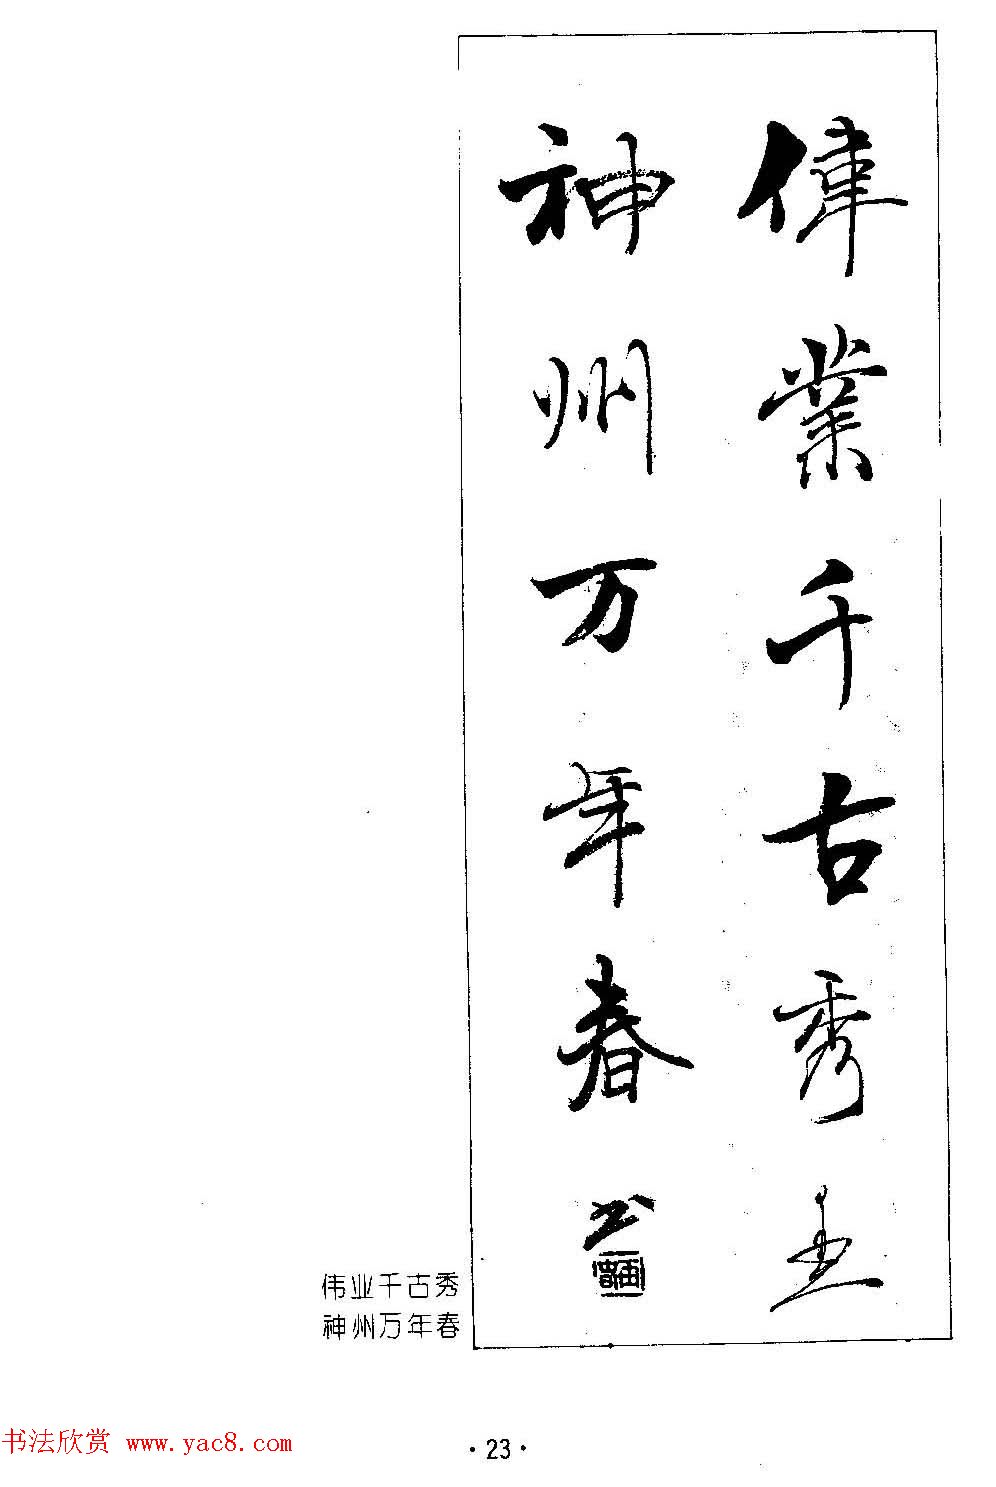 偉業千古秀
神州万年春
伟业千古秀
神州万年春
书法欣赏 www.yac8.com
·23·